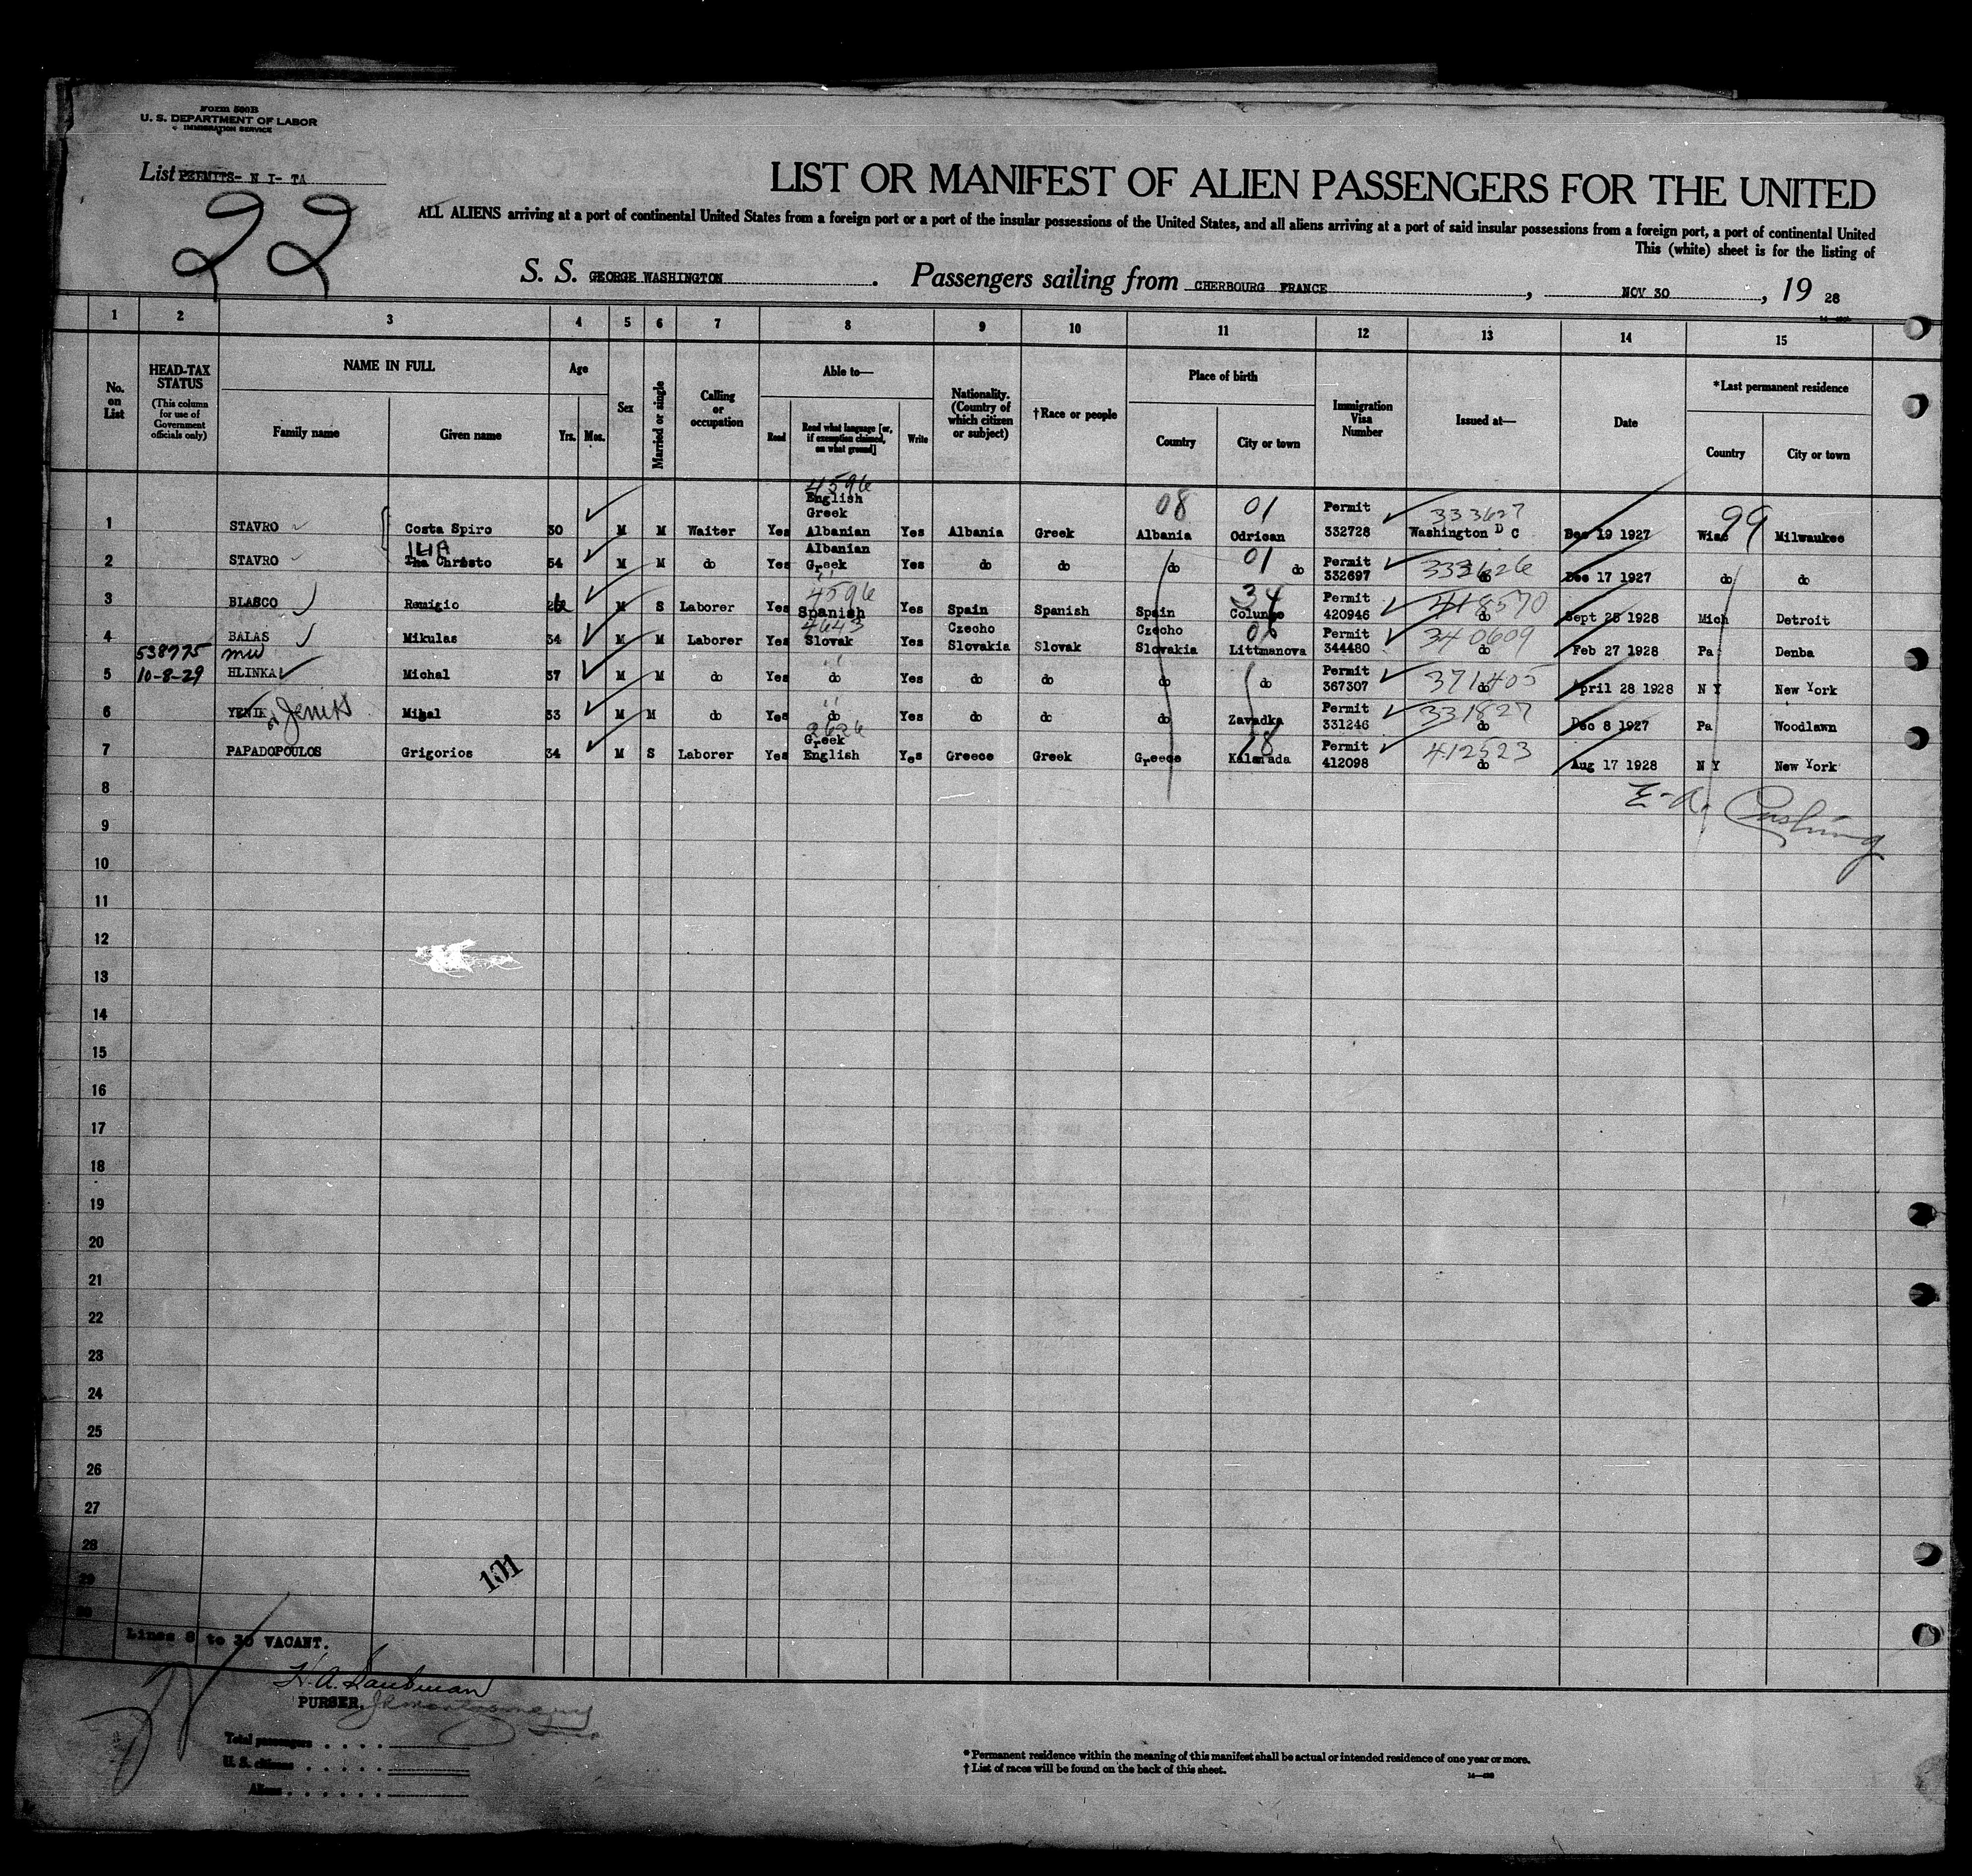 Form 500B
U. S. DEPARTMENT OF LABOR
IMMIGRATION SERVICE
List PERMITS- N I- TA
22
LIST OR MANIFEST OF ALIEN PASSENGERS FOR THE UNITED
ALL ALIENS arriving at a port of continental United States from a foreign port or a port of the insular possessions of the United States, and all aliens arriving at a port of said insular possessions from a foreign port, a port of continental United
This (white) sheet is for the listing of
S. S. GEORGE WASHINGTON . Passengers sailing from CHERBOURG FRANCE , NOV 30 , 19 28
1 2 3 4 5 6 7 8 9 10 11 12 13 14 15
No. on List
HEAD-TAX STATUS (This column for use of Government officials only)
NAME IN FULL
Family name Given name
Age
Yrs. Mos.
Sex
Married or single
Calling or occupation
Able to—
Read Read what language [or, if exemption claimed, on what ground] Write
Nationality. (Country of which citizen or subject)
†Race or people
Place of birth
Country City or town
Immigration Visa Number
Issued at—
Date
*Last permanent residence
Country City or town
4596 08 01 333627 99
1 STAVRO Costa Spiro 30 M M Waiter Yes English Greek Albanian Yes Albania Greek Albania Odrican Permit 332728 Washington D C Dec 19 1927 Wisc Milwaukee
ILIA 01 332626
2 STAVRO Christo 54 M M do Yes Albanian Greek Yes do do do do Permit 332697 do Dec 17 1927 do do
4596 34 418570
3 BLASCO Remigio M S Laborer Yes Spanish Yes Spain Spanish Spain Colunge Permit 420946 do Sept 25 1928 Mich Detroit
4643 06 340609
4 BALAS Mikulas 34 M M Laborer Yes Slovak Yes Czecho Slovakia Slovak Czecho Slovakia Littmanova Permit 344480 do Feb 27 1928 Pa Denba
538775 mw 371405
5 10-8-29 HLINKA Michal 37 M M do Yes do Yes do do do do Permit 367307 do April 28 1928 N Y New York
or 331827
6 YENIK Mihal 33 M M do Yes do Yes do do do Zavadka Permit 331246 do Dec 8 1927 Pa Woodlawn
2626 18 412523
7 PAPADOPOULOS Grigorios 34 M S Laborer Yes Greek English Yes Greece Greek Greece Kalamada Permit 412098 do Aug 17 1928 N Y New York
8
E-A. Cushing
9
10
11
12
13
14
15
16
17
18
19
20
21
22
23
24
25
26
27
28
29
30
101
Lines 8 to 30 VACANT.
PURSER.
Total passengers . . . .
U. S. citizens . . . . .
Aliens . . . . . .
* Permanent residence within the meaning of this manifest shall be actual or intended residence of one year or more.
† List of races will be found on the back of this sheet.